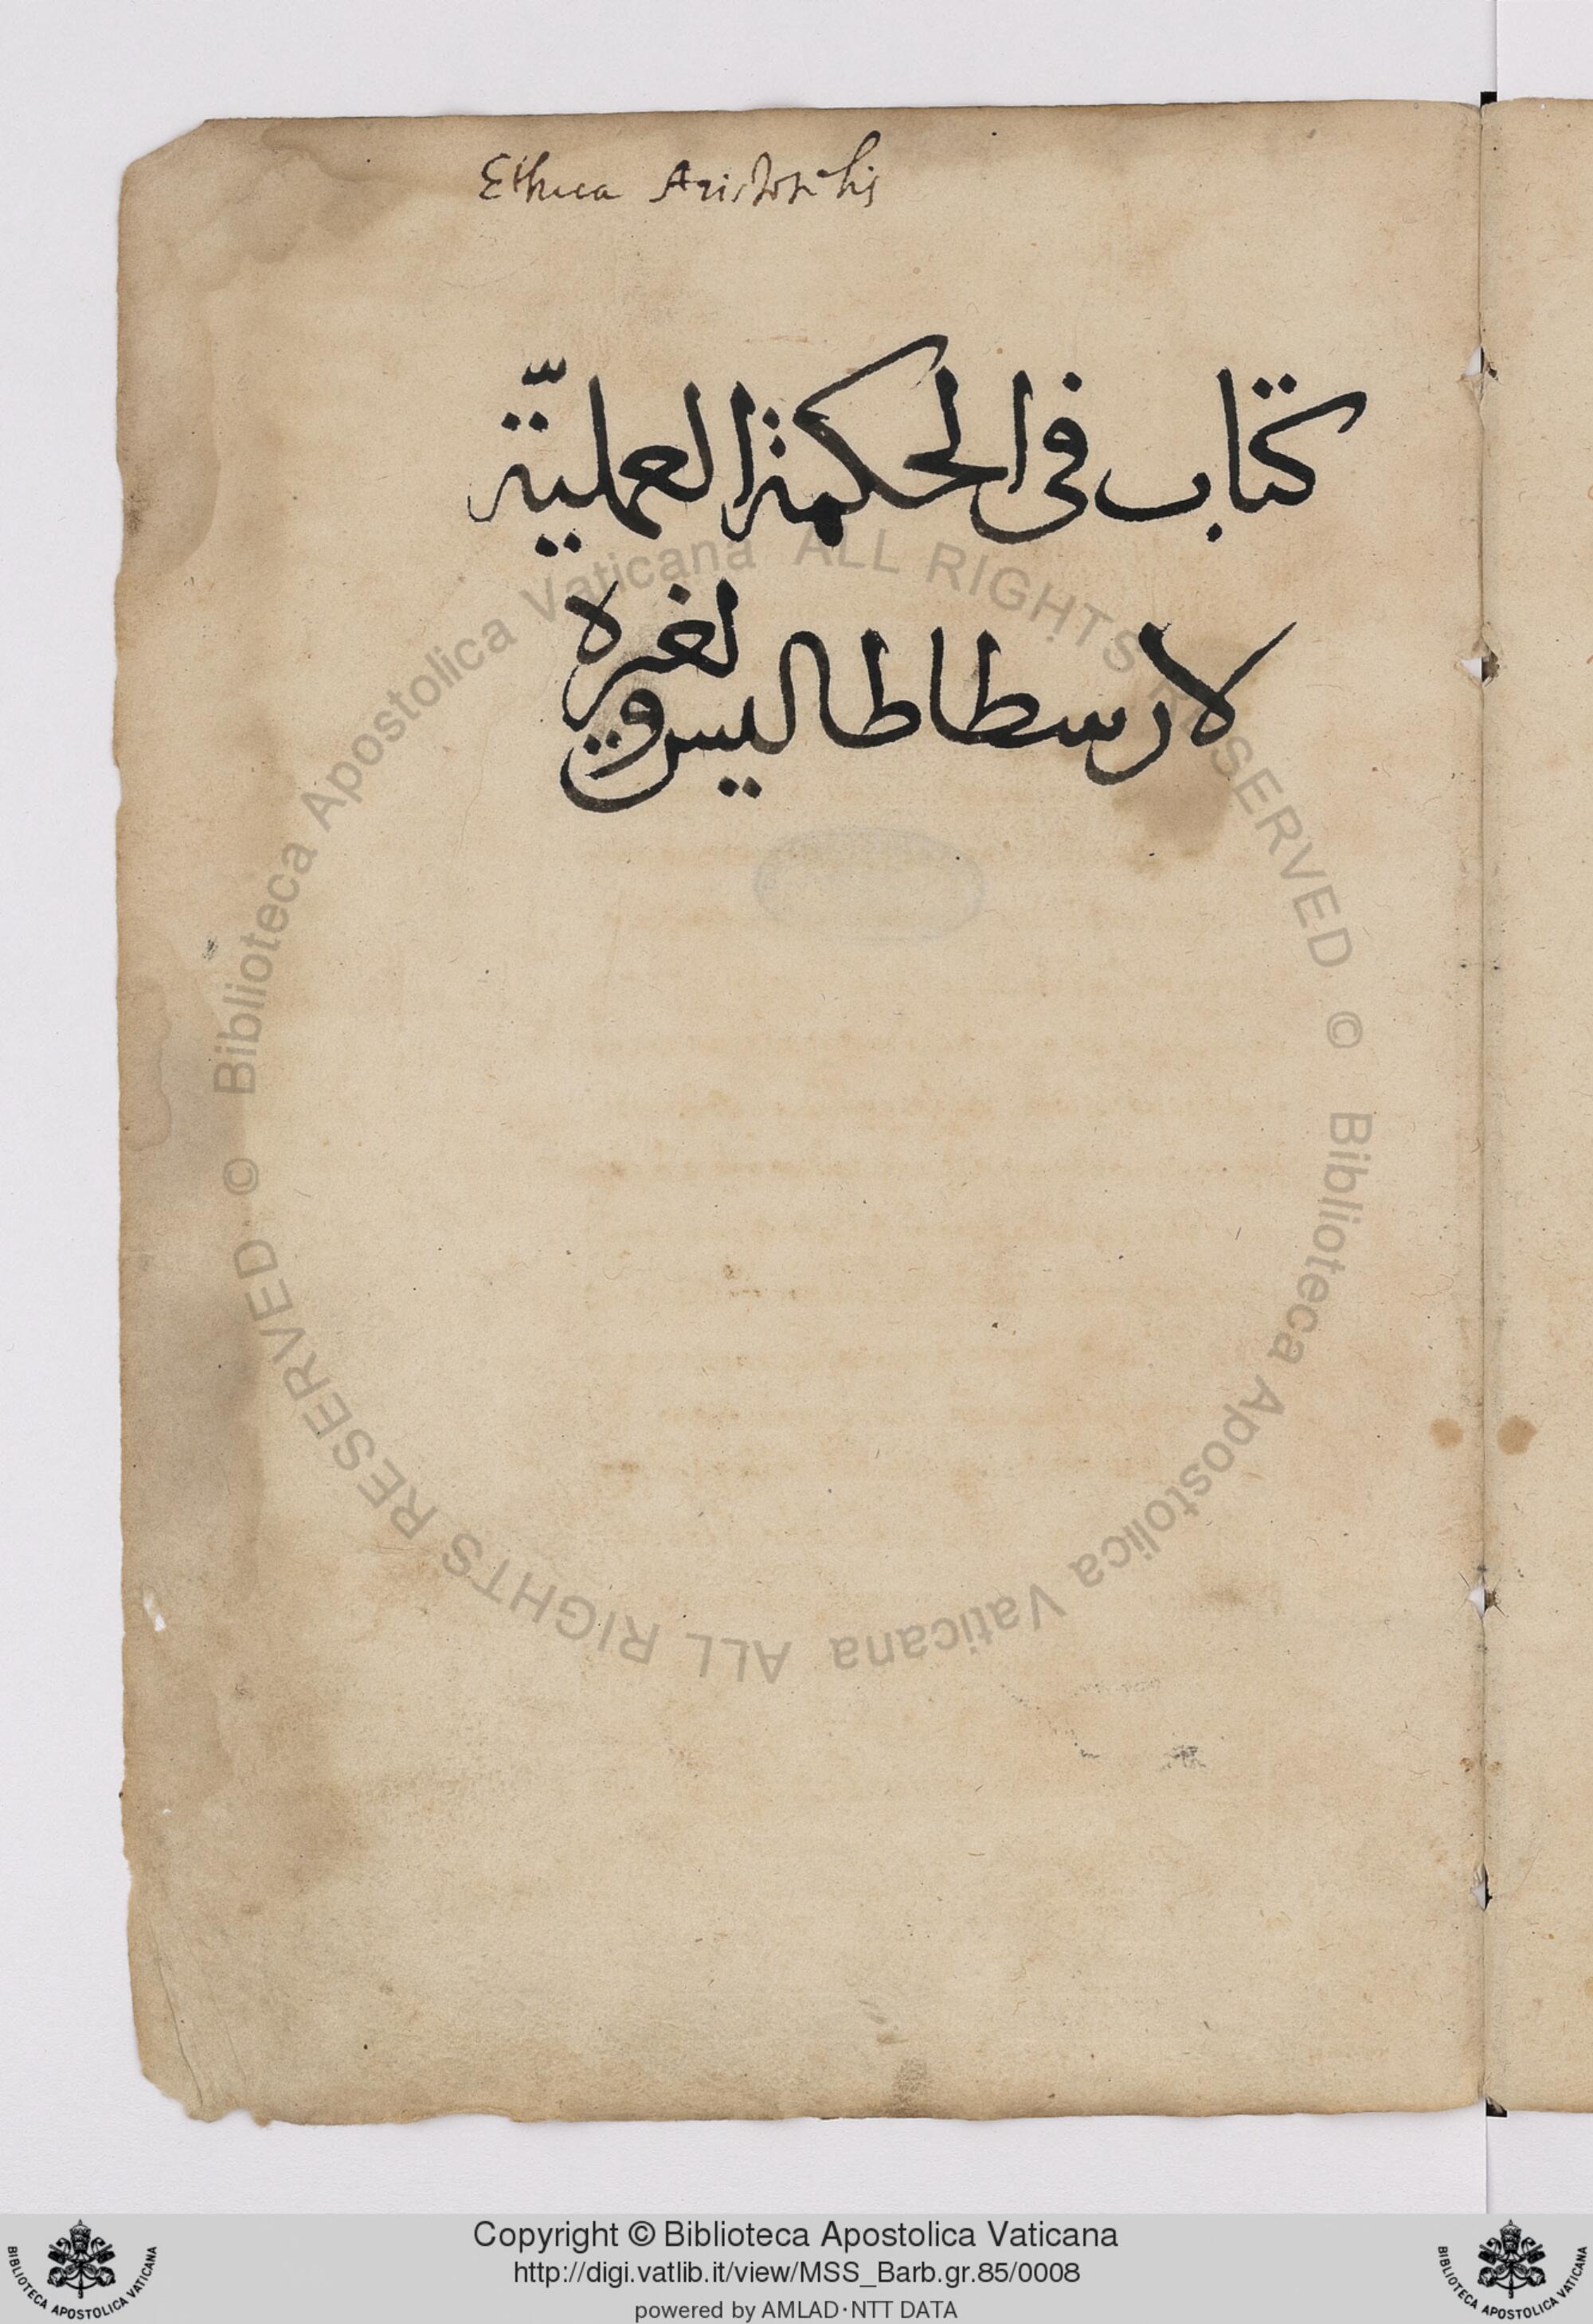 Ethica Aristotelis
كتاب في الحكمة العمليّة
لارسطاطاليس ولغيره
Biblioteca Apostolica Vaticana ALL RIGHTS RESERVED ©
Biblioteca Apostolica Vaticana ALL RIGHTS RESERVED ©
Copyright © Biblioteca Apostolica Vaticana
http://digi.vatlib.it/view/MSS_Barb.gr.85/0008
powered by AMLAD·NTT DATA
BIBLIOTECA APOSTOLICA VATICANA
BIBLIOTECA APOSTOLICA VATICANA